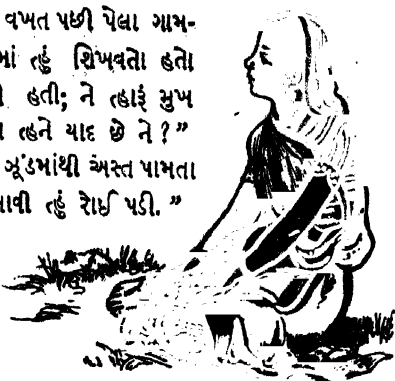 વખત પછી પેલા ગામ-
માં ત્હું શિખવતો હતો
હતી; ને ત્હારૂં મુખ
ત્હને યાદ છે ને ?”
ઝૂંડમાંથી અસ્ત પામતા
ત્હું રોઈ પડી.”